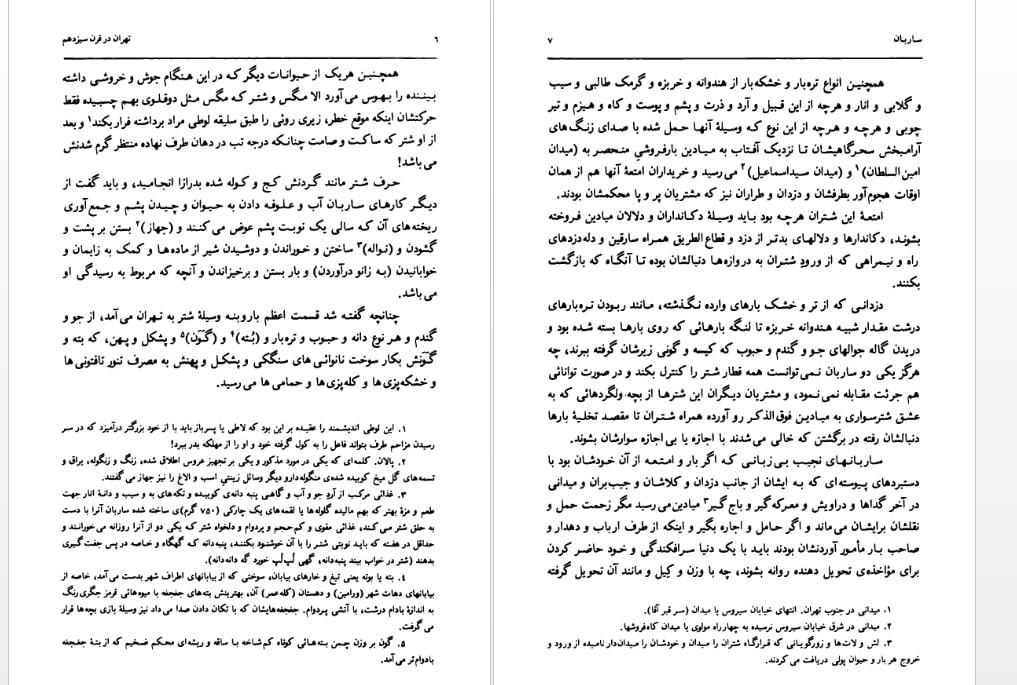 ساربان
۷
همچنین انواع تره‌بار و خشکه‌بار از هندوانه و خربزه و گرمک طالبی و سیب
و گلابی و انار و هرچه از این قبیل و آرد و ذرت و پشم و پوست و کاه و هیزم و تیر
چوبی و هرچه و هرچه از این نوع که وسیلهٔ آنها حمل شده با صدای زنگ‌های
آرامبخش سحرگاهیشان تا نزدیک آفتاب به میادین بارفروشی منحصر به (میدان
امین‌السلطان)۱ و (میدان سیداسماعیل)۲ می‌رسید و خریداران امتعهٔ آنها هم از همان
اوقات هجوم‌آور بطرفشان و دزدان و طراران نیز که مشتریان پر و پا محکمشان بودند.
امتعهٔ این شتران هرچه بود باید وسیلهٔ دکانداران و دلالان میادین فروخته
بشوند، دکاندارها و دلالهای بدتر از دزد و قطاع‌الطریق همراه سارقین و دله‌دزدهای
راه و نیمراهی که از ورود شتران به دروازه‌ها دنبالشان بوده تا آنگاه که بازگشت
بکنند.
دزدانی که از تر و خشک بارهای وارده نگذشته، مانند ربودن تره‌بارهای
درشت مقدار شبیه هندوانه خربزه تا لنگه بارهائی که روی بارها بسته شده بود و
دریدن گاله جوالهای جو و گندم و حبوب که کیسه و گونی زیرشان گرفته ببرند، چه
هرگز یکی دو ساربان نمی‌توانست همه قطار شتر را کنترل بکند و در صورت توانائی
هم جرئت مقابله نمی‌نمود، و مشتریان دیگران این شترها از بچه ولگردهائی که به
عشق شترسواری به میادین فوق‌الذکر رو آورده همراه شتران تا مقصد تخلیهٔ بارها
دنبالشان رفته در برگشتن که خالی می‌شدند با اجازه یا بی‌اجازه سوارشان بشوند.
ساربانهای نجیب بی‌زبانی که اگر بار و امتعه از آن خودشان بود با
دستبردهای پیوسته‌ای که به ایشان از جانب دزدان و کلاشان و جیب‌بران و میدانی
در آخر گداها و دراویش و معرکه‌گیر و باج‌گیر۳ میادین می‌رسید مگر زحمت حمل و
نقلشان برایشان می‌ماند و اگر حامل و اجاره بگیر و اینکه از طرف ارباب و دهدار و
صاحب بار مأمور آوردنشان بودند باید با یک دنیا سرافکندگی و خود حاضر کردن
برای مؤاخذه‌ی تحویل دهنده روانه بشوند، چه با وزن و کیل و مانند آن تحویل گرفته
۱. میدانی در جنوب تهران. انتهای خیابان سیروس یا میدان (سر قبر آقا).
۲. میدانی در شرق خیابان سیروس نرسیده به چهارراه مولوی یا میدان کاه‌فروشها.
۳. لش و لات‌ها و زورگویانی که قرارگاه شتران را میدان و خودشان را میدان‌دار نامیده از ورود و
خروج هر بار و حیوان پولی دریافت می‌کردند.
۶
تهران در قرن سیزدهم
همچنین هریک از حیوانات دیگر که در این هنگام جوش و خروشی داشته
بیننده را بهوس می‌آورد الا مگس و شتر که مگس مثل دوقلوی بهم چسبیده فقط
حرکتشان اینکه موقع خطر، زیری روئی را طبق سلیقه لوطی مراد برداشته فرار بکند۱ و بعد
از او شتر که ساکت و صامت چنانکه درجه تب در دهان طرف نهاده منتظر گرم شدنش
می‌باشد!
حرف شتر مانند گردنش کج و کوله شده بدرازا انجامید، و باید گفت از
دیگر کارهای ساربان آب و علوفه دادن به حیوان و چیدن پشم و جمع‌آوری
ریخته‌های آن که سالی یک نوبت پشم عوض می‌کنند و (جهاز)۲ بستن بر پشت و
گشودن و (نواله)۳ ساختن و خوراندن و دوشیدن شیر از ماده‌ها و کمک به زایمان و
خوابانیدن (به زانو درآوردن) و بار بستن و برخیزاندن و آنچه که مربوط به رسیدگی او
می‌باشد.
چنانچه گفته شد قسمت اعظم باروبنه وسیلهٔ شتر به تهران می‌آمد، از جو و
گندم و هر نوع دانه و حبوب و تره‌بار و (بُته)۴ و (گَوَن)۵ و پشکل و پهن، که بته و
گَوَنش بکار سوخت نانوائی‌های سنگکی و پشکل و پهنش به مصرف تنور تافتونی‌ها
و خشکه‌پزی‌ها و کله‌پزی‌ها و حمامی‌ها می‌رسید.
۱. این لوطی اندیشمند را عقیده بر این بود که لاطی یا پسرباز باید با از خود بزرگتر درآمیزد که در سر
رسیدن مزاحم طرف بتواند فاعل را به کول گرفته خود و او را از مهلکه بدر ببرد!
۲. پالان. کلمه‌ای که یکی در مورد مذکور و یکی بر تجهیز عروس اطلاق شده، زنگ و زنگوله، یراق و
تسمه‌های گل میخ کوبیده شده‌ی منگوله‌دار و دیگر وسائل زینتی اسب و الاغ را نیز جهاز می‌گفتند.
۳. غذائی مرکب از آرد جو و آب و گاهی پنبه دانه‌ی کوبیده و تکه‌های به و سیب و دانهٔ انار جهت
طعم و مزهٔ بهتر که بهم مالیده گلوله‌ها یا لقمه‌های یک چارکی (۷۵۰ گرم)ی ساخته شده ساربان آنرا با دست
به حلق شتر می‌کند، غذائی مقوی و کم‌حجم و پردوام و دلخواه شتر که یکی دو از آنرا روزانه می‌خورانند و
حداقل در هفته که باید نوبتی شتر را با آن خوشنود بکنند، پنبه‌دانه که گهگاه و خاصه در پس جفت‌گیری
بدهند (شتر در خواب بیند پنبه‌دانه، گهی لُپ‌لُپ خورد گه دانه‌دانه).
۴. بته یا بوته یعنی تیغ و خارهای بیابان، سوختی که از بیابانهای اطراف شهر بدست می‌آمد، خاصه از
بیابانهای دهات شهر (ورامین) و دهستان (کله‌عصر) آن، بهترینش بته‌های جغجغه با میوه‌هائی قرمز جگری‌رنگ
به اندازهٔ بادام درشت، با آتشی پردوام. جغجغه‌هایشان که با تکان دادن صدا می‌داد نیز وسیلهٔ بازی بچه‌ها قرار
می‌گرفت.
۵. گون بر وزن چمن بته‌هائی کوتاه کم‌شاخه با ساقه و ریشه‌ای محکم ضخیم که از بتهٔ جغجغه
بادوام‌تر می‌آمد.